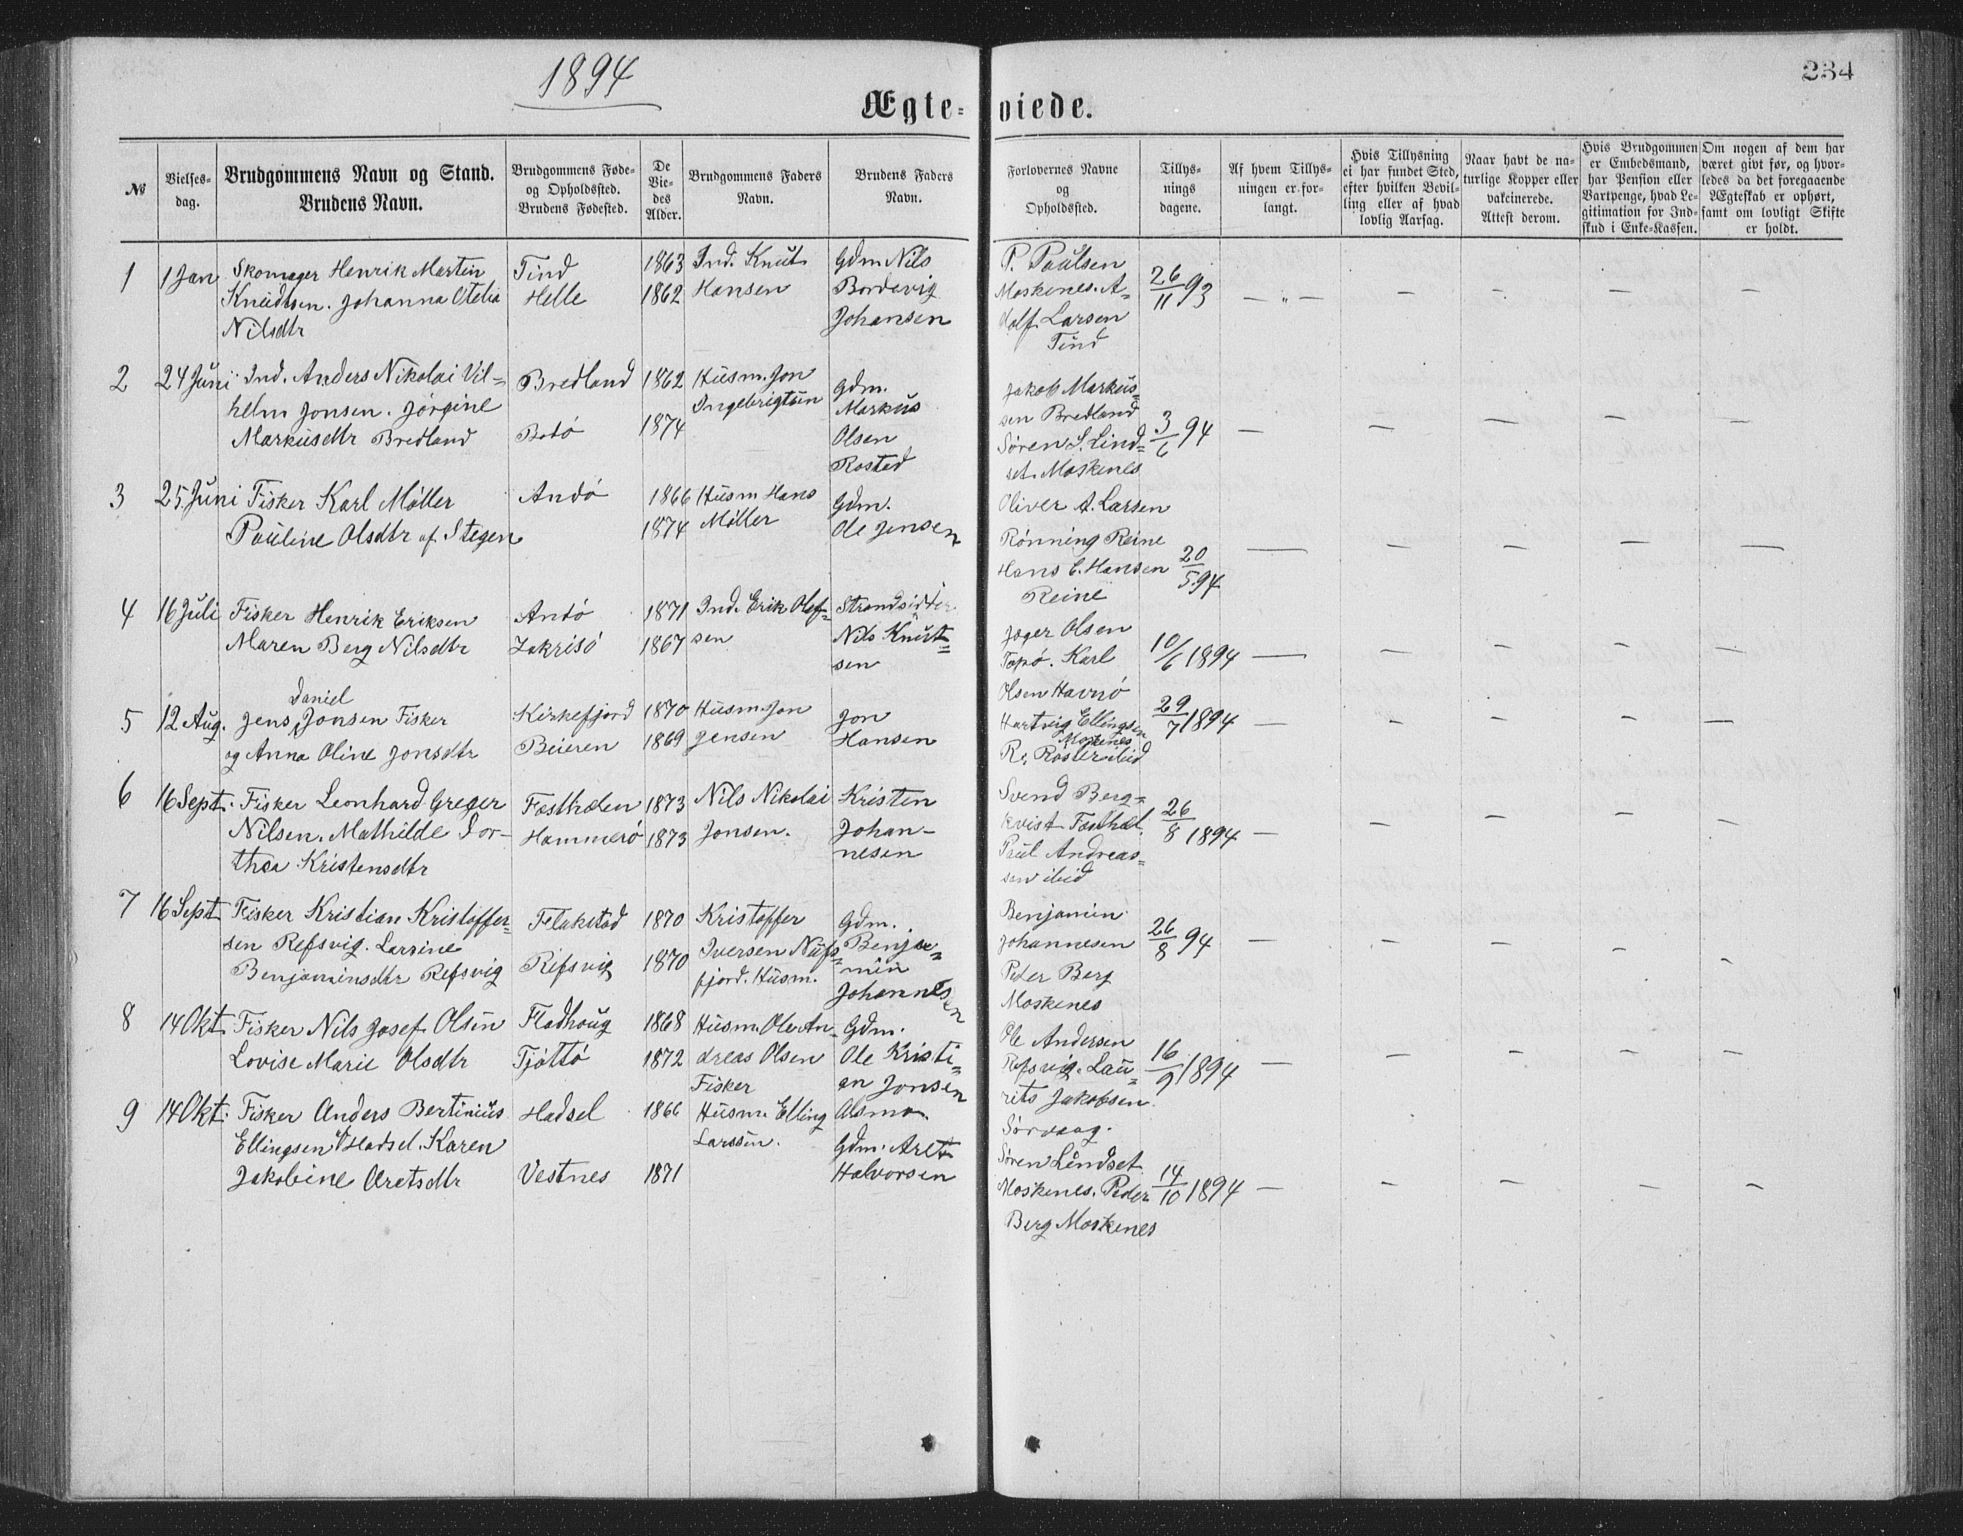 1894
234
Ægteviede.
№
Vielses-
dag.
Brudgommens Navn og Stand.
Brudens Navn.
Brudgommens Føde-
og Opholdssted.
Brudens Fødested.
De
Vie-
des
Alder.
Brudgommens Faders
Navn.
Brudens Faders
Navn.
Forlovernes Navne
og
Opholdssted.
Tillys-
nings
dagene.
Af hvem Tillys-
ningen er for-
langt.
Hvis Tillysning
ei har fundet Sted,
efter hvilken Bevil-
ling eller af hvad
lovlig Aarsag.
Naar havt de na-
turlige Kopper eller
vakcinerede.
Attest derom.
Hvis Brudgommen
er Embedsmand,
har Pension eller
Vartpenge, hvad Le-
gitimation for Ind-
skud i Enke-Kassen.
Om nogen af dem har
været givt før, og hvor-
ledes da det foregaaende
Ægteskab er ophørt,
samt om lovligt Skifte
er holdt.
1
1 Jan
Skomager Henrik Martin
Knudtsen. Johanna Otelia
Nilsdtr
Tind
Helle
1863
1862
Ind. Knut
Hansen
Gdm Nils
Bordevig
Johansen
P. Paulsen
Moskenes. A-
dolf Larsen
Tind
26/11 93
— „ —
2
24 Juni
Ind. Anders Nikolai Vil=
helm Jonsen. Jørgine
Markusdtr Bredland
Bredland
Bodø
1862
1874
Husm. Jon
Ingebrigtsen
Gdm.
Markus
Olsen
Rosted
Jakob Markus=
sen Bredland
Søren S. Lind=
set. Moskenes
3/6 94
3
25. Juni
Fisker Karl Møller
Pauline Olsdtr af Stegen
Andø
1866
1874
Husm Hans
Møller
Gdm.
Ole Jensen
Oliver A. Larsen
Rønning Reine
Hans C. Hansen
Reine
20/5.94
4
16 Juli
Fisker Henrik Eriksen
Maren Berg Nilsdtr
Andø
Zakrisø
1871
1867
Ind. Erik Olef=
sen
Strandsidder
Nils Knut=
sen
Jæger Olsen
Topø. Karl
Olsen Havnø
10/6 1894
5
12 Aug.
Daniel
Jens Jonsen Fisker
og Anna Oline Jonsdtr
Kirkefjord
Beieren
1870
1869
Husm Jon
Jensen
Jon
Hansen
Hartvig Ellingsen
Moskenes
R. Rasters ibid
29/7 1894
6
16 Sept.
Fisker Leonhard Greger
Nilsen. Mathilde Dor-
thea Kristensdtr
Festhælen
Hammerø
1873
1873
Nils Nikolai
Jonsen.
Kristen
Johan-
nesen
Svend Berg=
kvist Festhæl.
Paul Andreas=
sen ibid
26/8 1894
7
16 Sept
Fisker Kristian Kristoffer=
sen Refsvig. Larsine
Benjaminsdtr Refsvig
Flakstad
Refsvig
1870
1870
Kristoffer
Iversen Nufs=
fjord. Husm.
Gdm.
Benja=
min
Johannesen
Benjamin
Johannesen
Peder Berg
Moskenes
26/8 94
8
14 Okt
Fisker Nils Josef Olsen
Lovise Marie Olsdtr
Fladhoug
Tjøttø
1868
1872
Husm. Ole An-
dreas Olsen
Fisker
Gdm.
Ole Kristi=
an Jonsen
Ole Andersen
Refsvig. Lau=
rits Jakobsen
Sørvaag.
16/9 1894
9
14 Okt.
Fisker Anders Bertinius
Ellingsen af Hadsel. Karen
Jakobine Aretsdtr
Hadsel
Vestnes
1866
1871
Husm. Elling
Larssen.
Gdm. Aret
Halvorsen
Søren Lindset
Moskenes. Peder
Berg Moskenes
14/10 1894